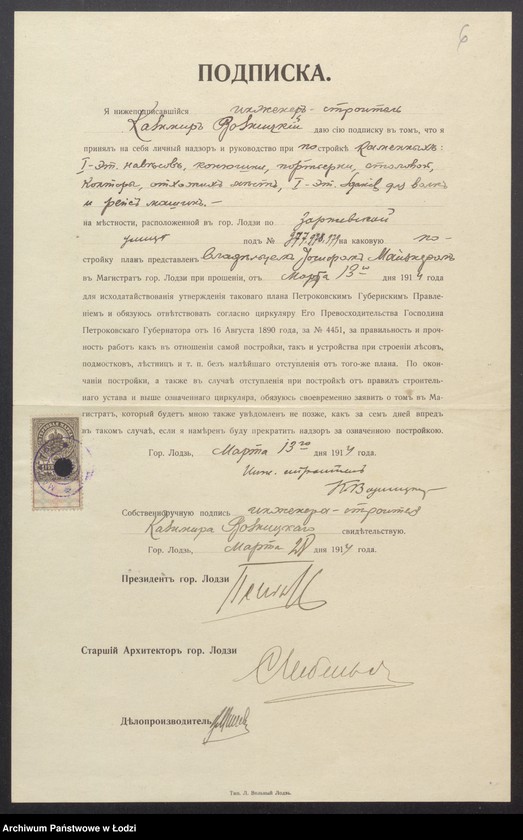 6
ПОДПИСКА.
Я нижеподписавшійся инженеръ-строитель
Казимиръ даю сію подписку въ томъ, что я
принялъ на себя личный надзоръ и руководство при постройкѣ каменныхъ:
I-эт. навѣсовъ, конюшни, портьерки, столовой,
конторы, отхожихъ мѣстъ, I-эт. для
и машинъ.-
на мѣстности, расположенной въ гор. Лодзи по
улицѣ подъ № 377, 378, 379 на каковую по-
стройку планъ представленъ владѣльцемъ Іосифомъ
въ Магистратъ гор. Лодзи при прошеніи, отъ Марта 13го дня 1914 года
для исходатайствованія утвержденія таковаго плана Петроковскимъ Губернскимъ Правле-
ніемъ и обязуюсь отвѣтствовать согласно циркуляру Его Превосходительства Господина
Петроковскаго Губернатора отъ 16 Августа 1890 года, за № 4451, за правильность и проч-
ность работъ какъ въ отношеніи самой постройки, такъ и устройства при строеніи лѣсовъ,
подмостковъ, лѣстницъ и т. п. безъ малѣйшаго отступленія отъ того-же плана. По окон-
чаніи постройки, а также въ случаѣ отступленія при постройкѣ отъ правилъ строитель-
наго устава и выше означеннаго циркуляра, обязуюсь своевременно заявить о томъ въ Ма-
гистратъ, который будетъ мною также увѣдомленъ не позже, какъ за семь дней впредъ
въ такомъ случаѣ, если я намѣренъ буду прекратить надзоръ за означенною постройкою.
Гор. Лодзь, Марта 13го дня 1914 года.
Инж. строитель
Собственноручную подпись инженера-строителя
Казимира свидѣтельствую.
Гор. Лодзь, Марта 28 дня 1914 года.
Президентъ гор. Лодзи
Старшій Архитекторъ гор. Лодзи
Дѣлопроизводитель
Тип. Л. Вольный Лодзь.
Archiwum Państwowe w Łodzi